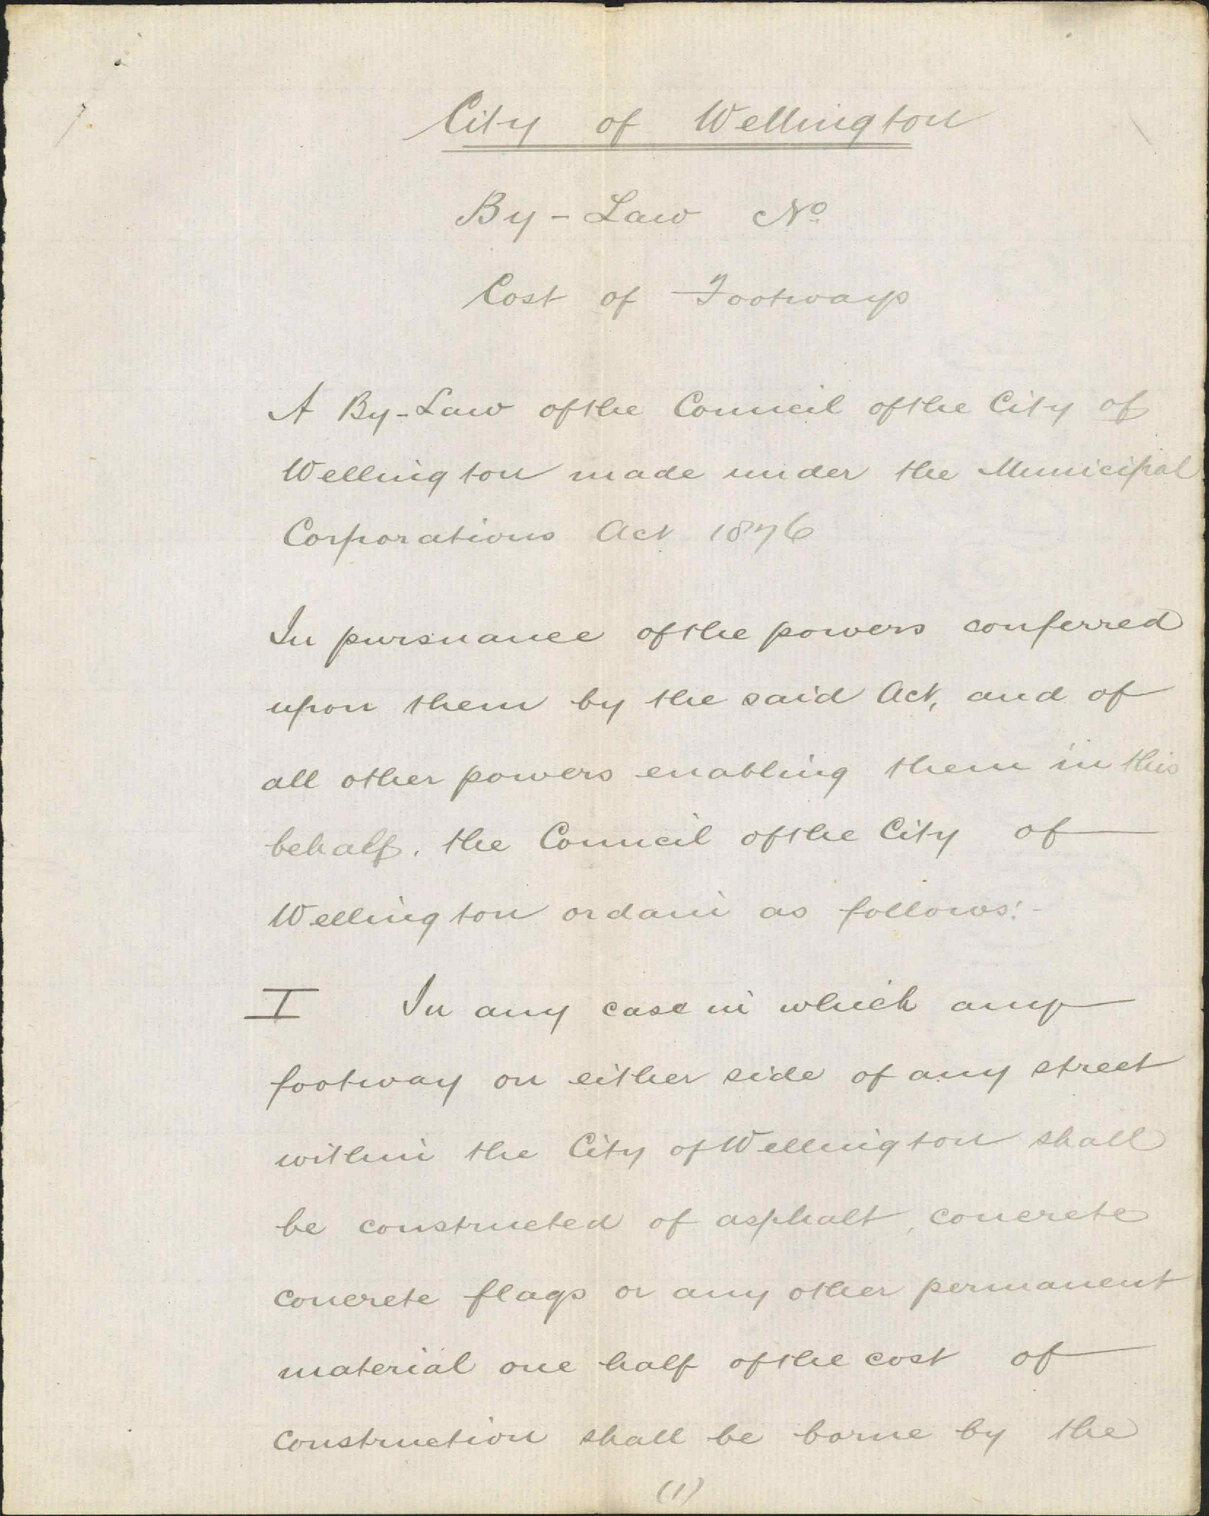 City of Wellington
By-Law No
Cost of Footways
A By-Law of the Council of the City of
Wellington made under the Municipal
Corporations Act 1876
In pursuance of the powers conferred
upon them by the said Act, and of
all other powers enabling them in this
behalf. the Council of the City of
Wellington ordain as follows:-
I In any case in which any
footway on either side of any street
within the City of Wellington shall
be constructed of asphalt, concrete
concrete flags or any other permanent
material one half of the cost of
construction shall be borne by the
(1)